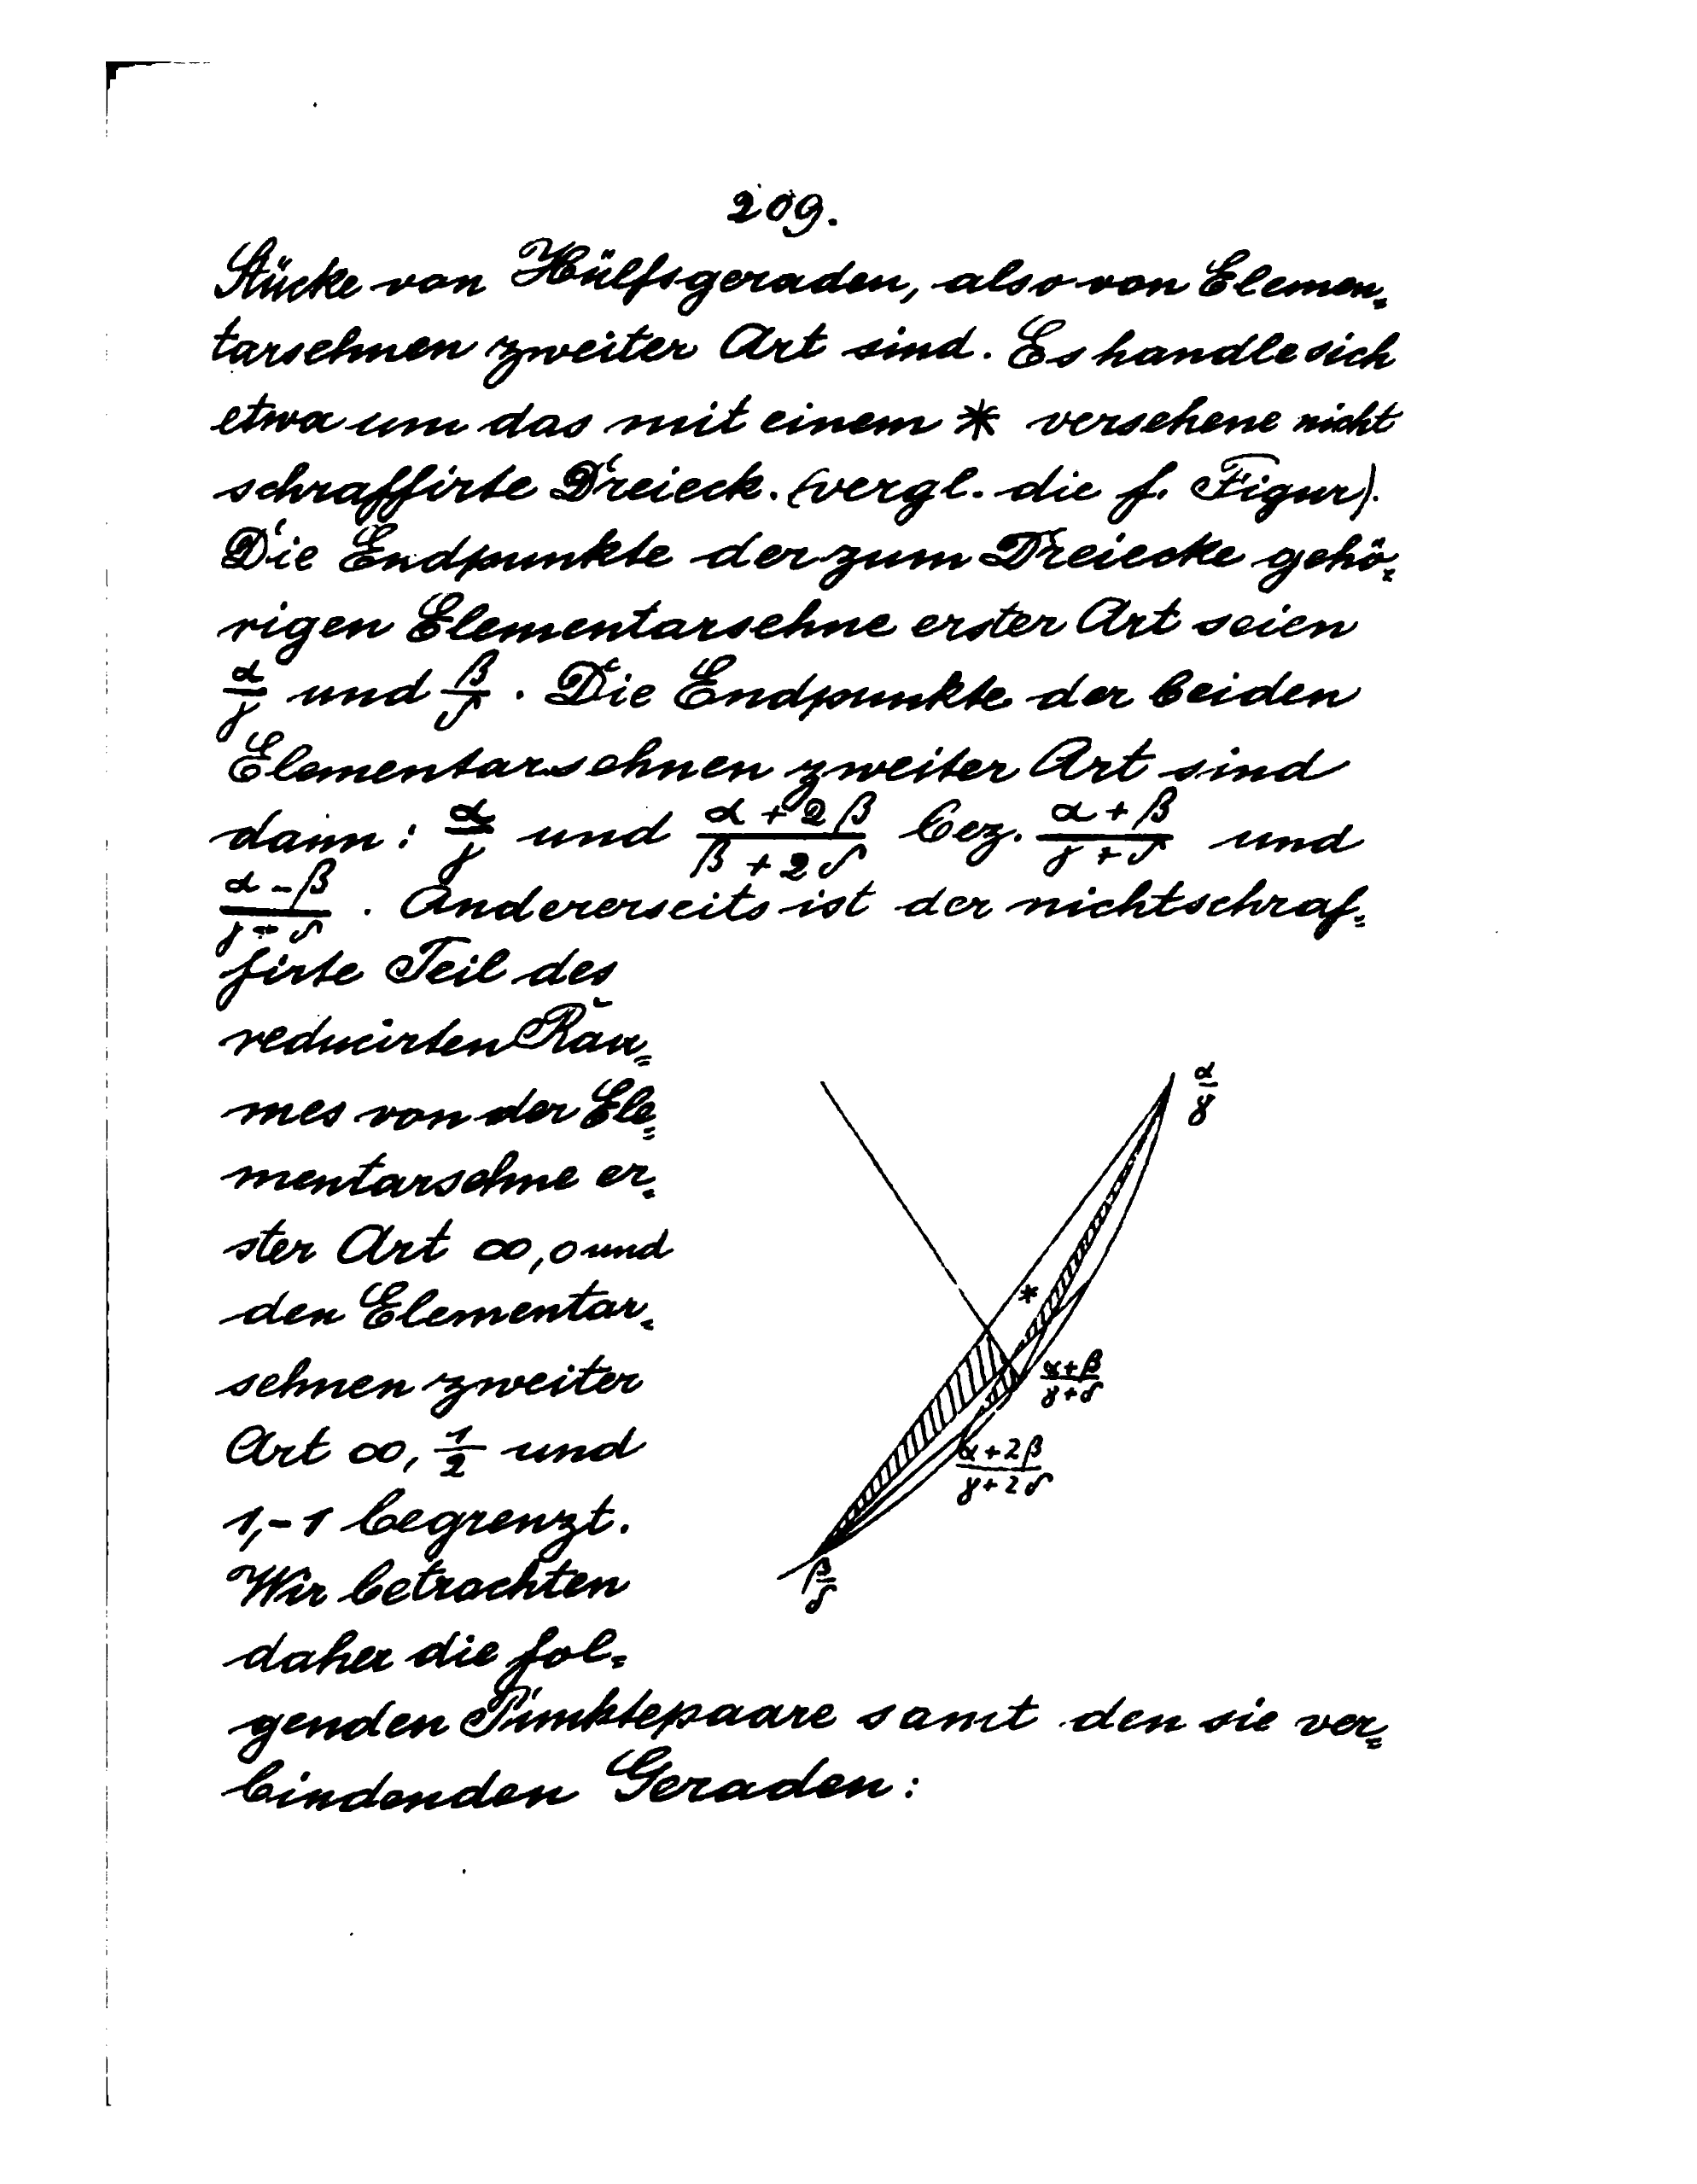 209.
Stücke von Hülfsgeraden, also von Elemen=
tarsehnen zweiter Art sind. Es handle sich
etwa um das mit einem * versehene nicht
schraffirte Dreieck. (vergl. die f. Figur).
Die Endpunkte der zum Dreiecke gehö=
rigen Elementarsehne erster Art seien
α/γ und β/δ. Die Endpunkte der beiden
Elementarsehnen zweiter Art sind
dann: α/γ und (α+2β)/(β+2δ) bez. (α+β)/(γ+δ) und
(α-β)/(γ-δ). Andererseits ist der nichtschraf=
firte Teil des
reducirten Rau=
mes von der Ele=
mentarsehne er=
ster Art ∞, 0 und
den Elementar=
sehnen zweiter
Art ∞, 1/2 und
1,-1 begrenzt.
Wir betrachten
daher die fol=
genden Punktepaare samt den sie ver=
bindenden Geraden:
α/γ
*
(α+β)/(γ+δ)
(α+2β)/(γ+2δ)
β/δ